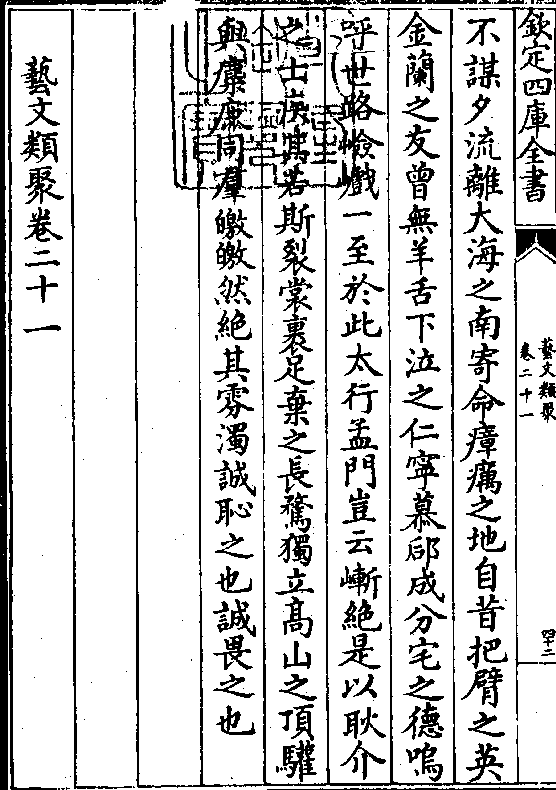 欽定四庫全書
藝文類聚
卷二十一
四十二
不謀夕流離大海之南寄命瘴癘之地自昔把臂之英
金蘭之友曾無羊舌下泣之仁寧慕郈成分宅之德嗚
呼世路嶮巇一至於此太行孟門豈云嶄絕是以耿介
之士疾其若斯裂裳裹足棄之長騖獨立高山之頂驩
與麋鹿同羣皦皦然絕其雰濁誠恥之也誠畏之也
藝文類聚卷二十一